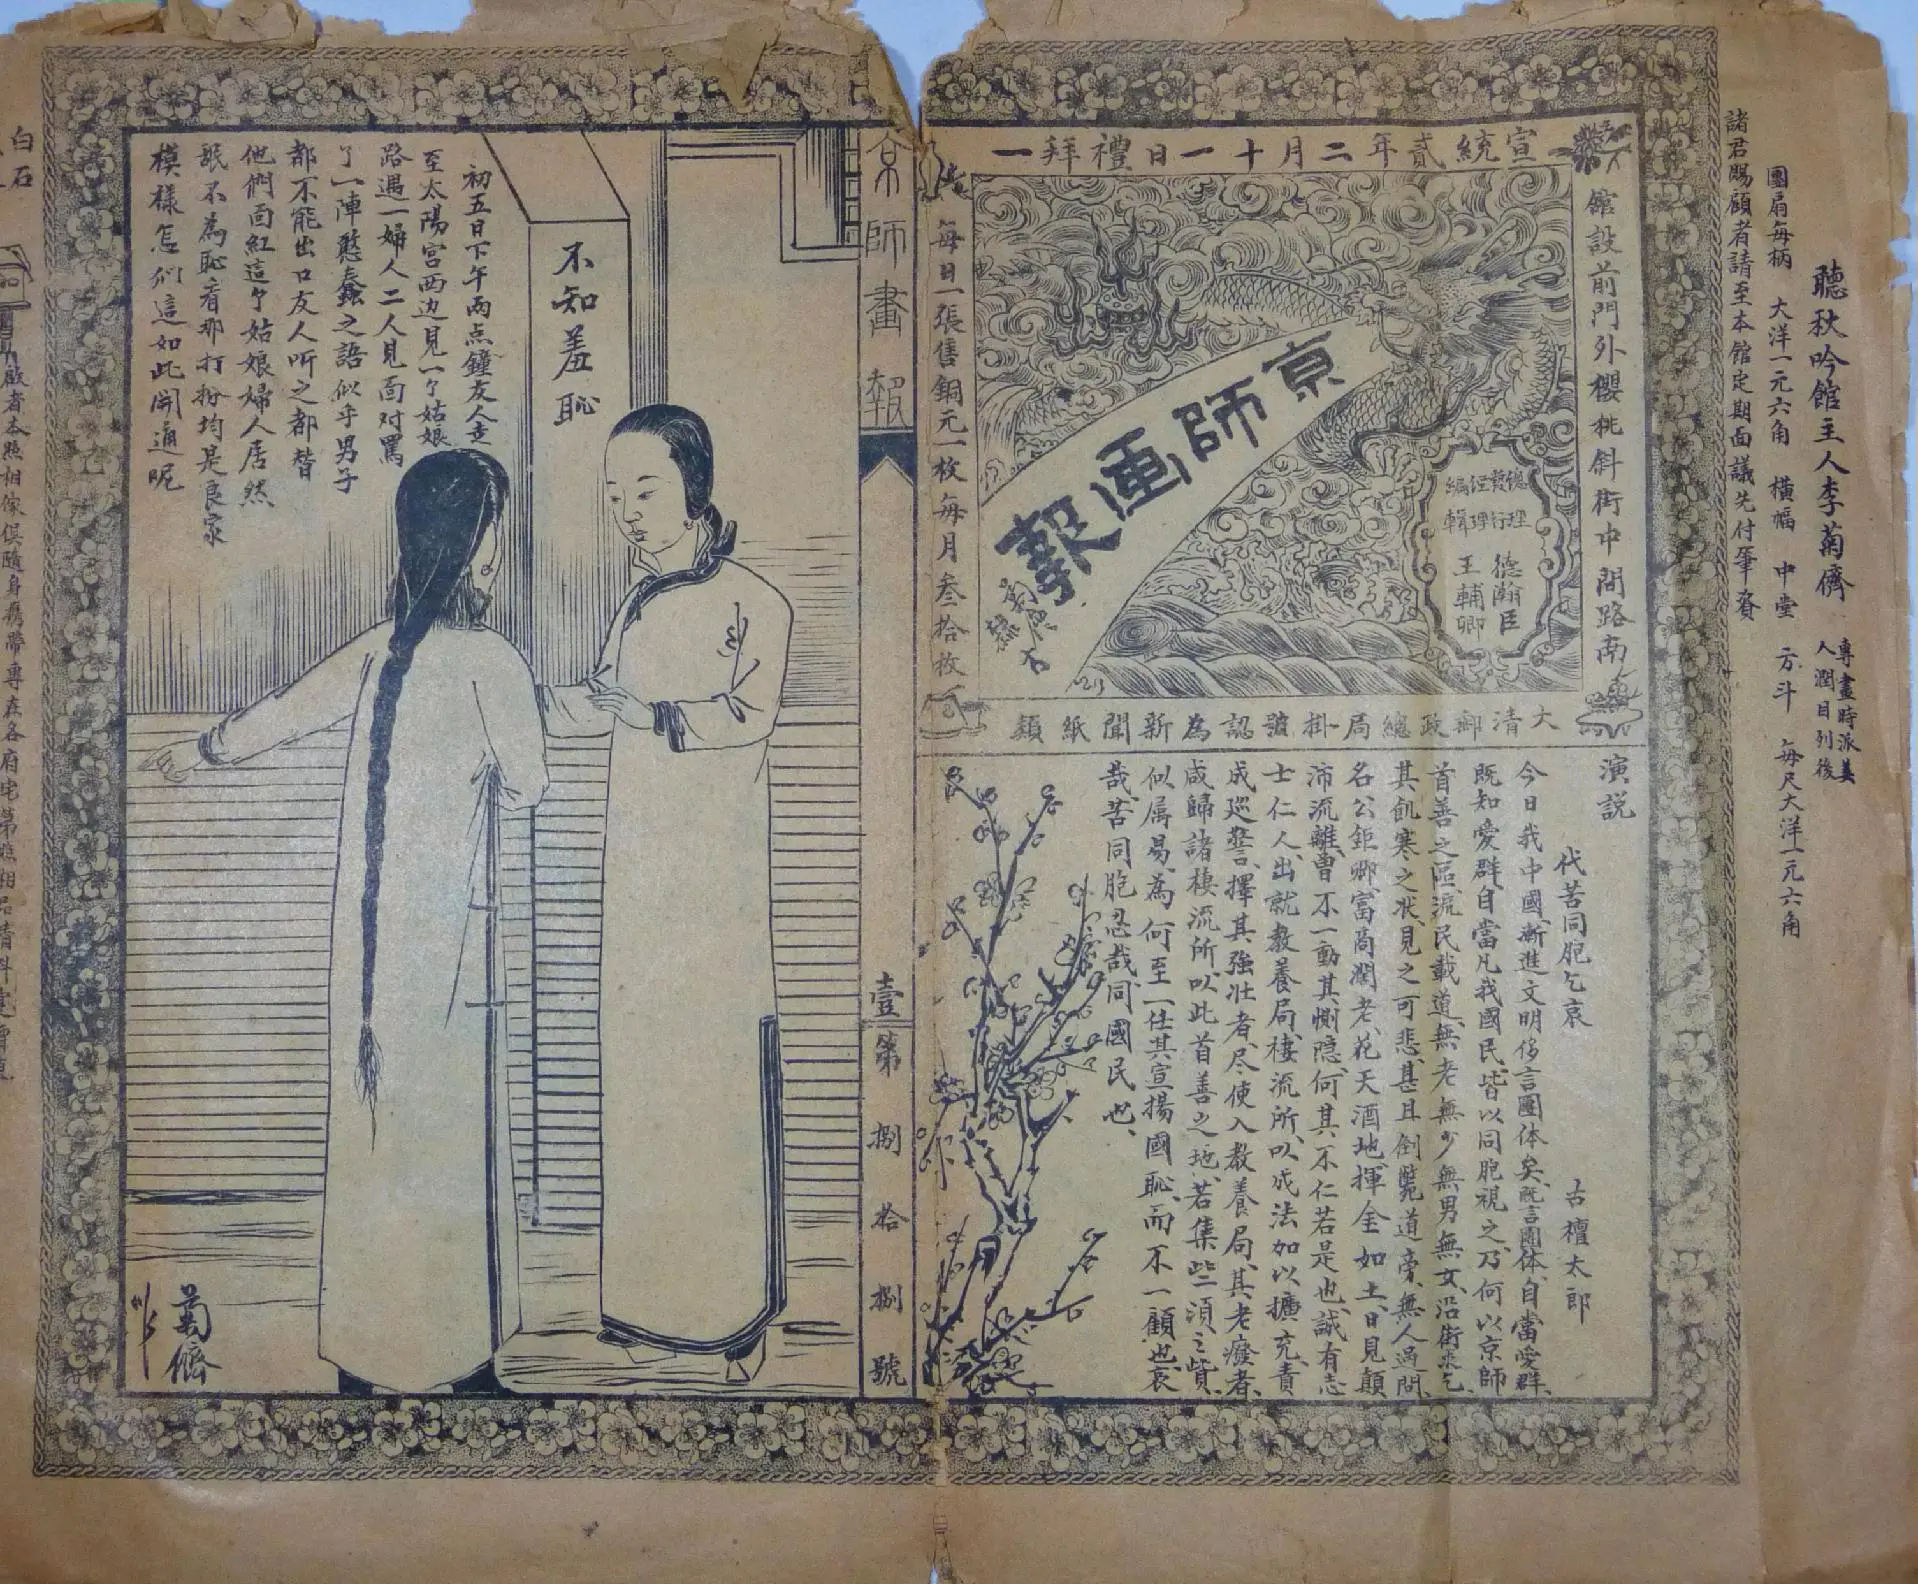 聽秋吟館主人李菊儕
專畫時派美
人潤目列後
團扇每柄　大洋一元六角　橫幅　中堂　方斗　每尺大洋一元六角
諸君賜顧者請至本館定期面議先付筆資
宣統貳年二月十一日禮拜一
館設前門外櫻桃斜街中間路南
京師画報
菊儕
總理
發行
經理
編輯
德瀚臣
王輔卿
每日一張售銅元一枚每月叁拾枚
大清郵政總局掛號認為新聞紙類
演説
代苦同胞乞哀
古檀太郎
今日我中國、漸進文明、侈言團体矣、旣言團体、自當愛群、
既知愛群、自當凡我國民、皆以同胞視之、乃何以京師
首善之區、流民載道、無老無少、無男無女、沿街乞乞、
其飢寒之狀、見之可悲、甚且倒斃道旁、無人過問、
名公鉅卿、富商濶老、花天酒地、揮金如土、日見顛
沛流離、曾不一動其惻隱、何其不仁若是也、誠有志
士仁人、出就教養局、棲流所、以成法如以擴充、責
成巡警、擇其強壯者、尽使入教養局、其老癈者、
咸歸諸棲流所、以此首善之地、若集些二須之貲、
似属易為、何至一任其宣揚國恥、而不一顧也、哀
哉、苦同胞、忍哉、同國民也、
京師畫報
壹
第捌拾捌號
不知羞恥
初五日下午兩点鐘友人走
至太陽宮西边見一个姑娘
路遇一婦人二人見面对罵
了一陣憨蠢之語似乎男子
都不能出口友人听之都替
他們面紅這个姑娘婦人居然
毫不為恥看那打扮均是良家
模樣怎們這如此開通呢
菊儕
作
白石
啟者本照相傢俱隨身攜帶專在各府宅第照相